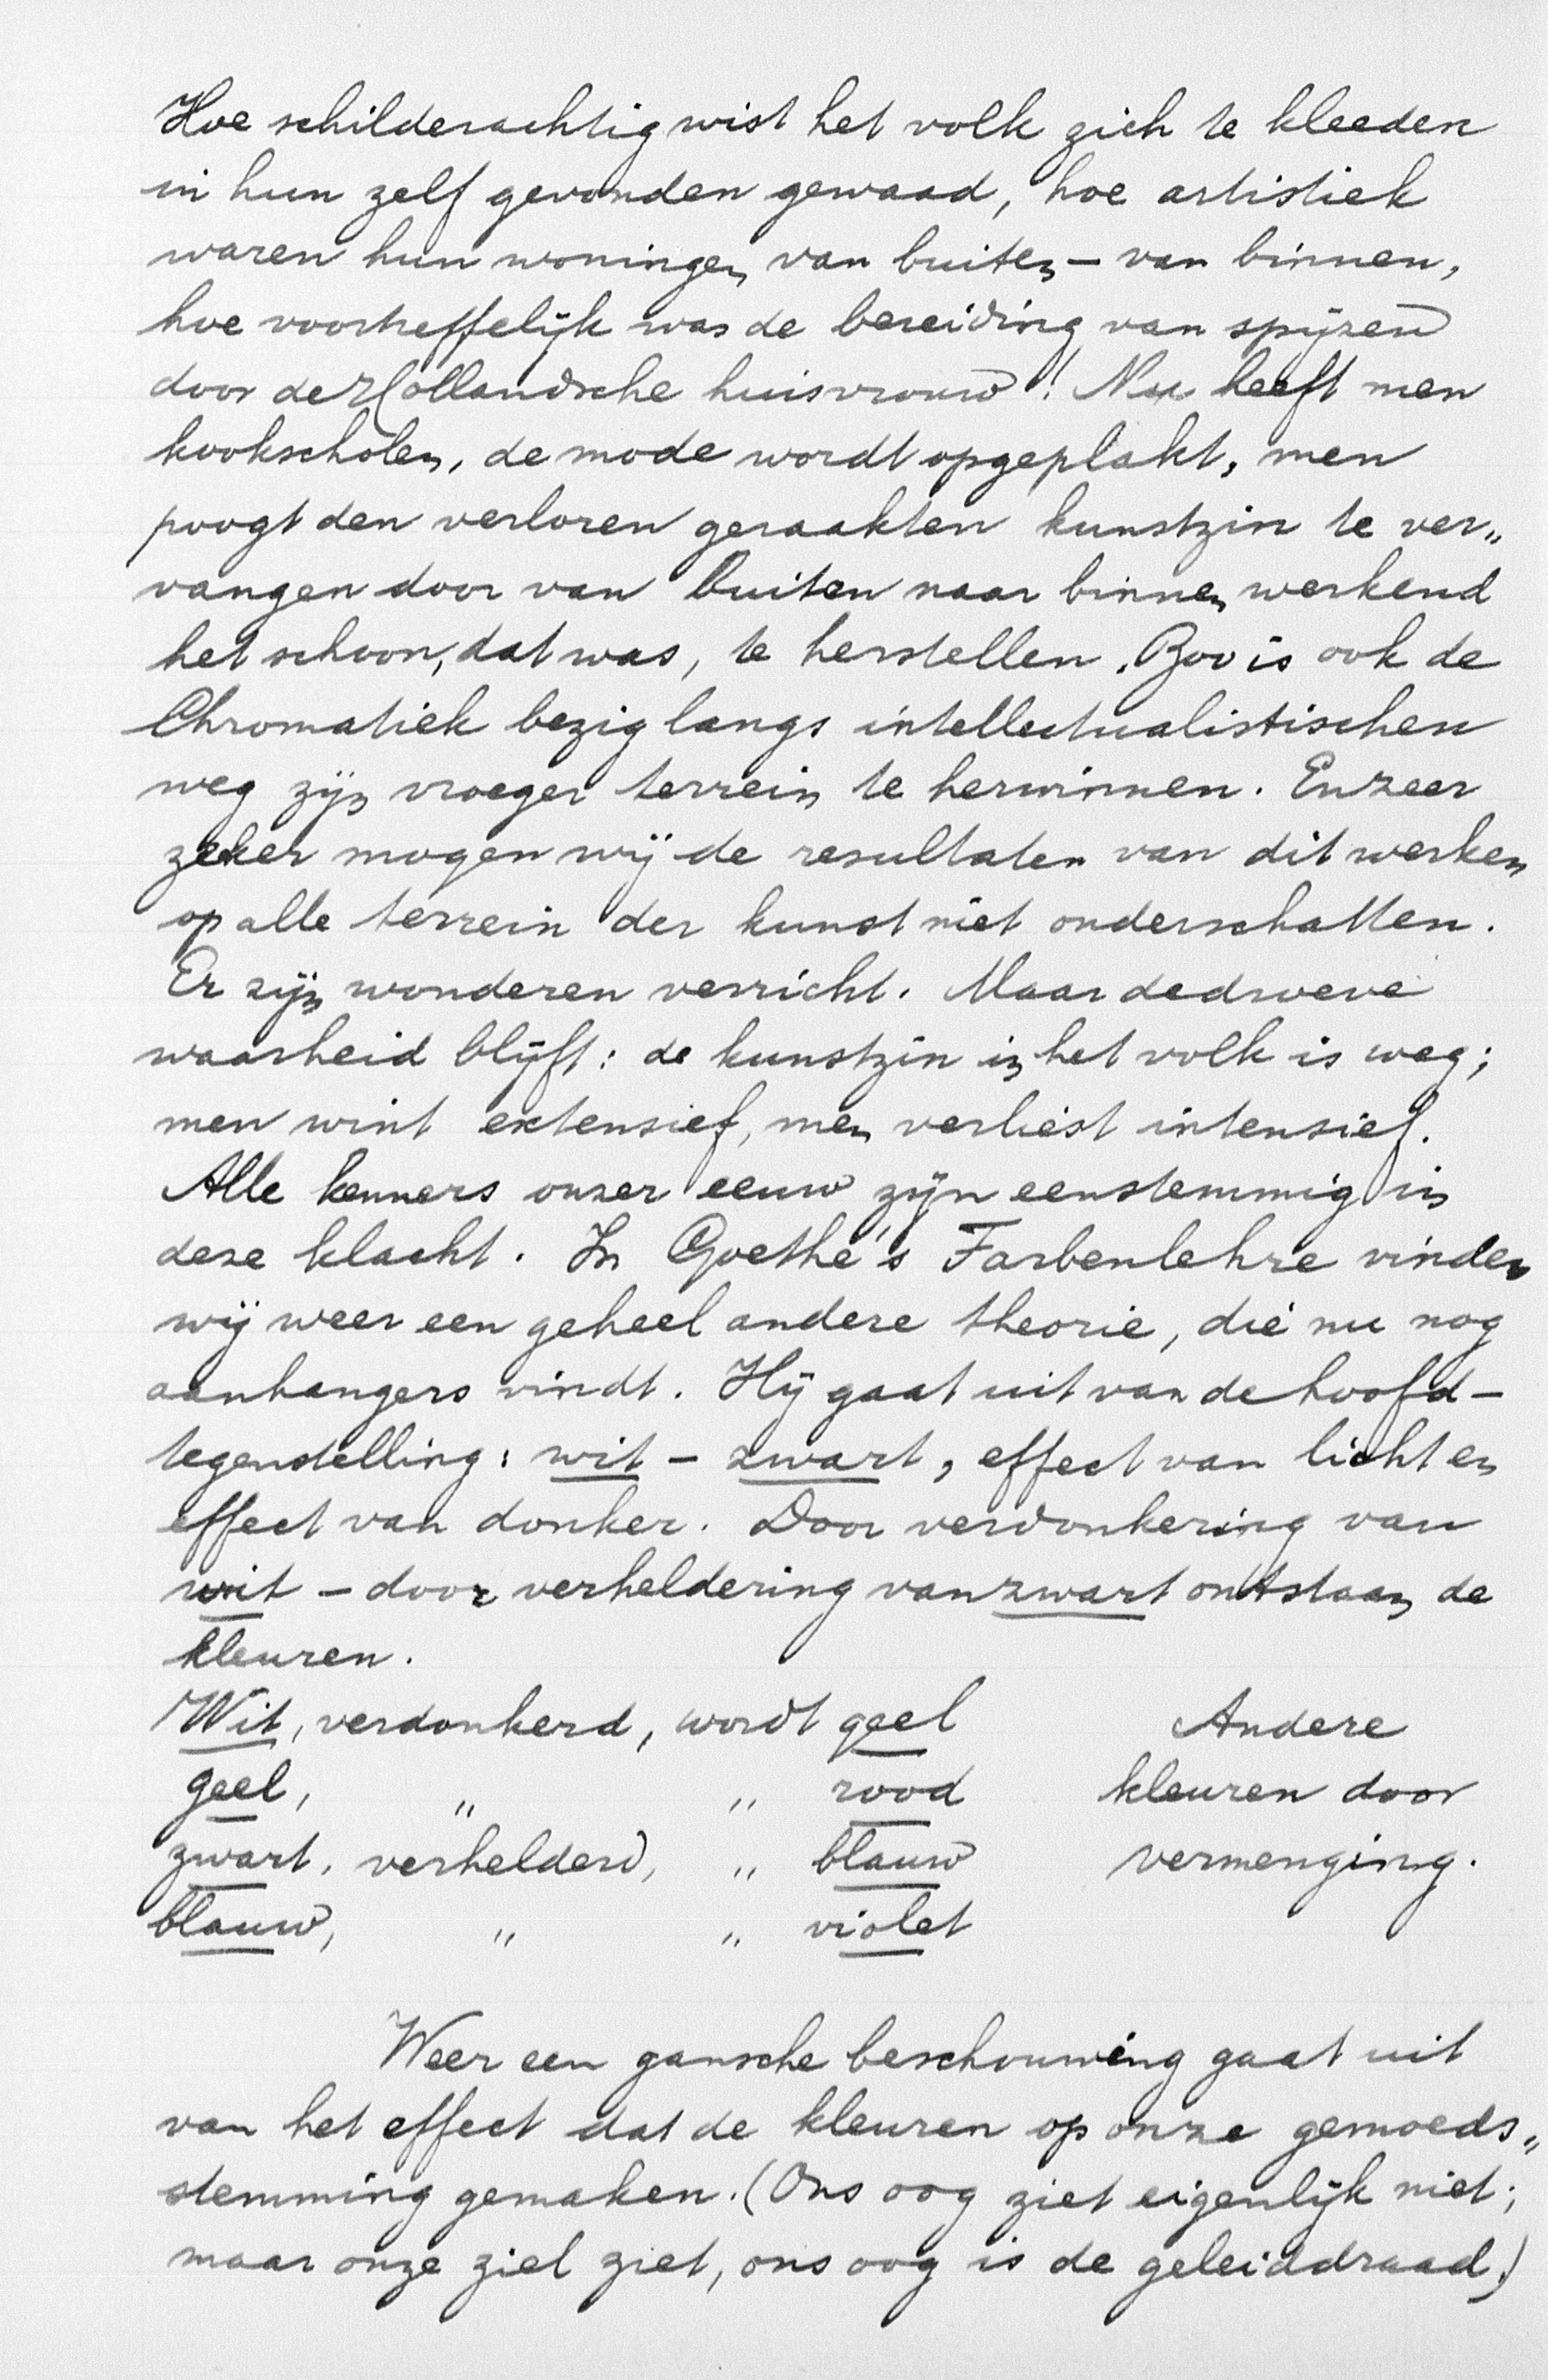 Hoe schilderachtig wist het volk zich te kleeden
in hun zelf gevonden gewaad, hoe artistiek
waren hun woningen van buiten – van binnen,
hoe voortreffelijk was de bereiding van spijzen
door de Hollandsche huisvrouw! Nu heeft men
kookscholen, de mode wordt opgeplakt, men
poogt den verloren geraakten kunstzin te ver„
vangen door van buiten naar binnen werkend
het schoon, dat was, te herstellen. Zoo is ook de
Chromatiek bezig langs intellectualistischen
weg zijn vroeger terrein te herwinnen. En zeer
zeker mogen wij de resultaten van dit werken
op alle terrein der kunst niet onderschatten.
Er zijn wonderen verricht. Maar de droeve
waarheid blijft: de kunstzin in het volk is weg;
men wint extensief, men verliest intensief.
Alle kenners onzer eeuw zijn eenstemmig in
deze klacht. In Goethe's Farbenlehre vinden
wij weer een geheel andere theorie, die nu nog
aanhangers vindt. Hij gaat uit van de hoofd–
tegenstelling: wit – zwart, effect van licht en
effect van donker. Door verdonkering van
wit – door verheldering van zwart ontstaan de
kleuren.
Wit, verdonkerd, wordt geel Andere
geel, „ „ rood kleuren door
zwart, verhelderd, „ blauw vermenging.
blauw, „ „ violet
Weer een gansche beschouwing gaat uit
van het effect dat de kleuren op onze gemoeds„
stemming gemaken. (Ons oog ziet eigenlijk niet;
maar onze ziel ziet, ons oog is de geleiddraad.)